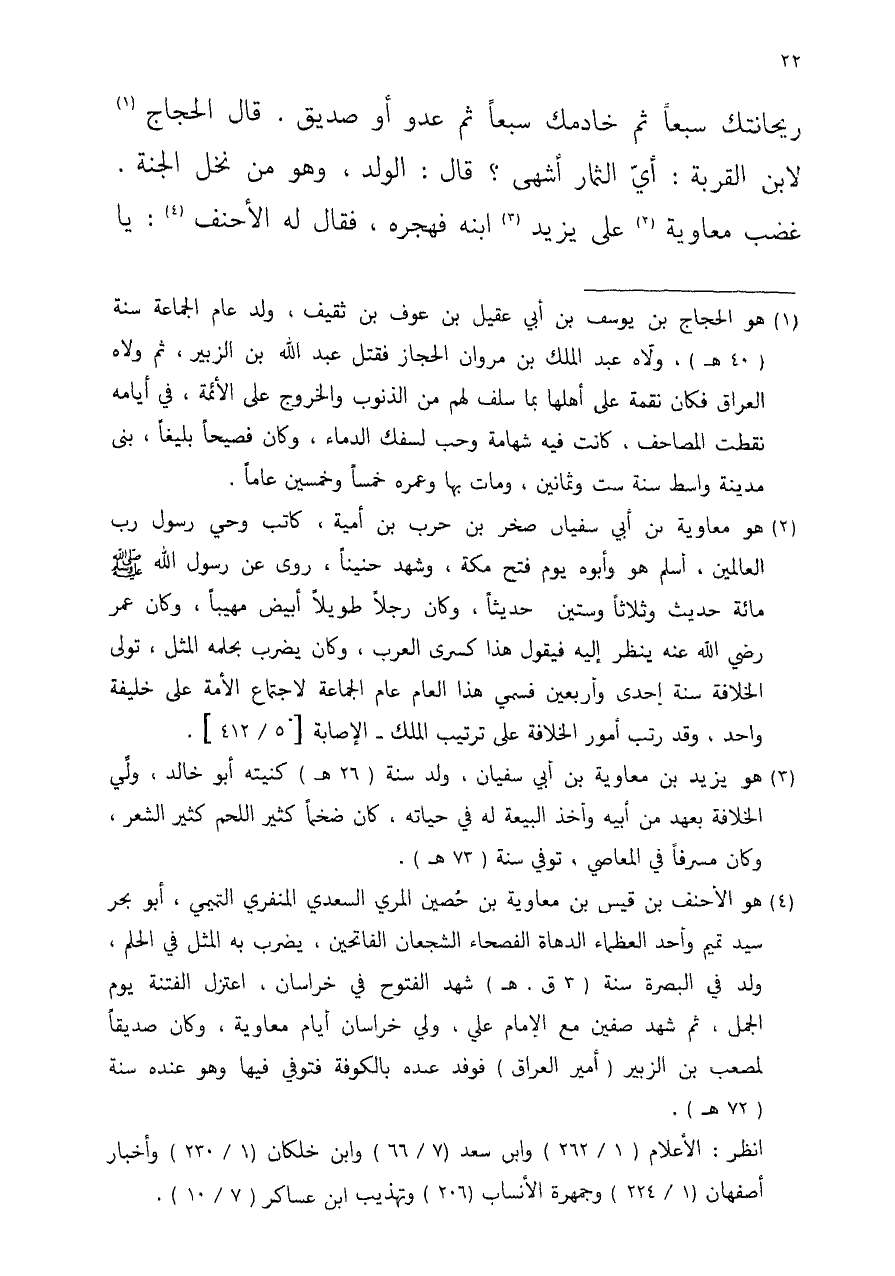 ٢٢
ريحانتك سبعاً ثم خادمك سبعاً ثم عدو أو صديق . قال الحجاج (١)
لابن القربة : أيّ الثمار أشهى ؟ قال : الولد ، وهو من نخل الجنة .
غضب معاوية (٢) على يزيد (٣) ابنه فهجره ، فقال له الأحنف (٤) : يا
(١) هو الحجاج بن يوسف بن أبي عقيل بن عوف بن ثقيف ، ولد عام الجماعة سنة
( ٤٠ هـ ) ، ولّاه عبد الملك بن مروان الحجاز فقتل عبد الله بن الزبير ، ثم ولاه
العراق فكان نقمة على أهلها بما سلف لهم من الذنوب والخروج على الأئمة ، في أيامه
نقطت المصاحف . كانت فيه شهامة وحب لسفك الدماء ، وكان فصيحاً بليغاً ، بنى
مدينة واسط سنة ست وثمانين ، ومات بها وعمره خمساً وخمسين عاماً .
(٢) هو معاوية بن أبي سفيان صخر بن حرب بن أمية ، كاتب وحي رسول رب
العالمين ، أسلم هو وأبوه يوم فتح مكة ، وشهد حنيناً ، روى عن رسول الله ﷺ
مائة حديث وثلاثاً وستين حديثاً ، وكان رجلاً طويلاً أبيض مهيباً ، وكان عمر
رضي الله عنه ينظر إليه فيقول هذا كسرى العرب ، وكان يضرب بحلمه المثل ، تولى
الخلافة سنة إحدى وأربعين فسمي هذا العام عام الجماعة لاجتماع الأمة على خليفة
واحد ، وقد رتب أمور الخلافة على ترتيب الملك ـ الإصابة [ ٥ / ٤١٢ ] .
(٣) هو يزيد بن معاوية بن أبي سفيان ، ولد سنة ( ٢٦ هـ ) كنيته أبو خالد ، ولِّي
الخلافة بعهد من أبيه وأخذ البيعة له في حياته ، كان ضخماً كثير اللحم كثير الشعر ،
وكان مسرفاً في المعاصي ، توفي سنة ( ٧٣ هـ ) .
(٤) هو الأحنف بن قيس بن معاوية بن حُصين المري السعدي المنفري التميمي ، أبو بحر
سيد تميم وأحد العظماء الدهاة الفصحاء الشجعان الفاتحين ، يضرب به المثل في الحلم ،
ولد في البصرة سنة ( ٣ ق . هـ ) شهد الفتوح في خراسان ، اعتزل الفتنة يوم
الجمل ، ثم شهد صفين مع الإمام علي ، ولي خراسان أيام معاوية ، وكان صديقاً
لمصعب بن الزبير ( أمير العراق ) فوفد عبده بالكوفة فتوفي فيها وهو عنده سنة
( ٧٢ هـ ) .
انظر : الأعلام ( ١ / ٢٦٢ ) وابن سعد (٧ / ٦٦ ) وابن خلكان (١ / ٢٣٠ ) وأخبار
أصفهان (١ / ٢٢٤ ) وجمهرة الأنساب (٢٠٦ ) وتهذيب ابن عساكر ( ٧ / ١٠ ) .